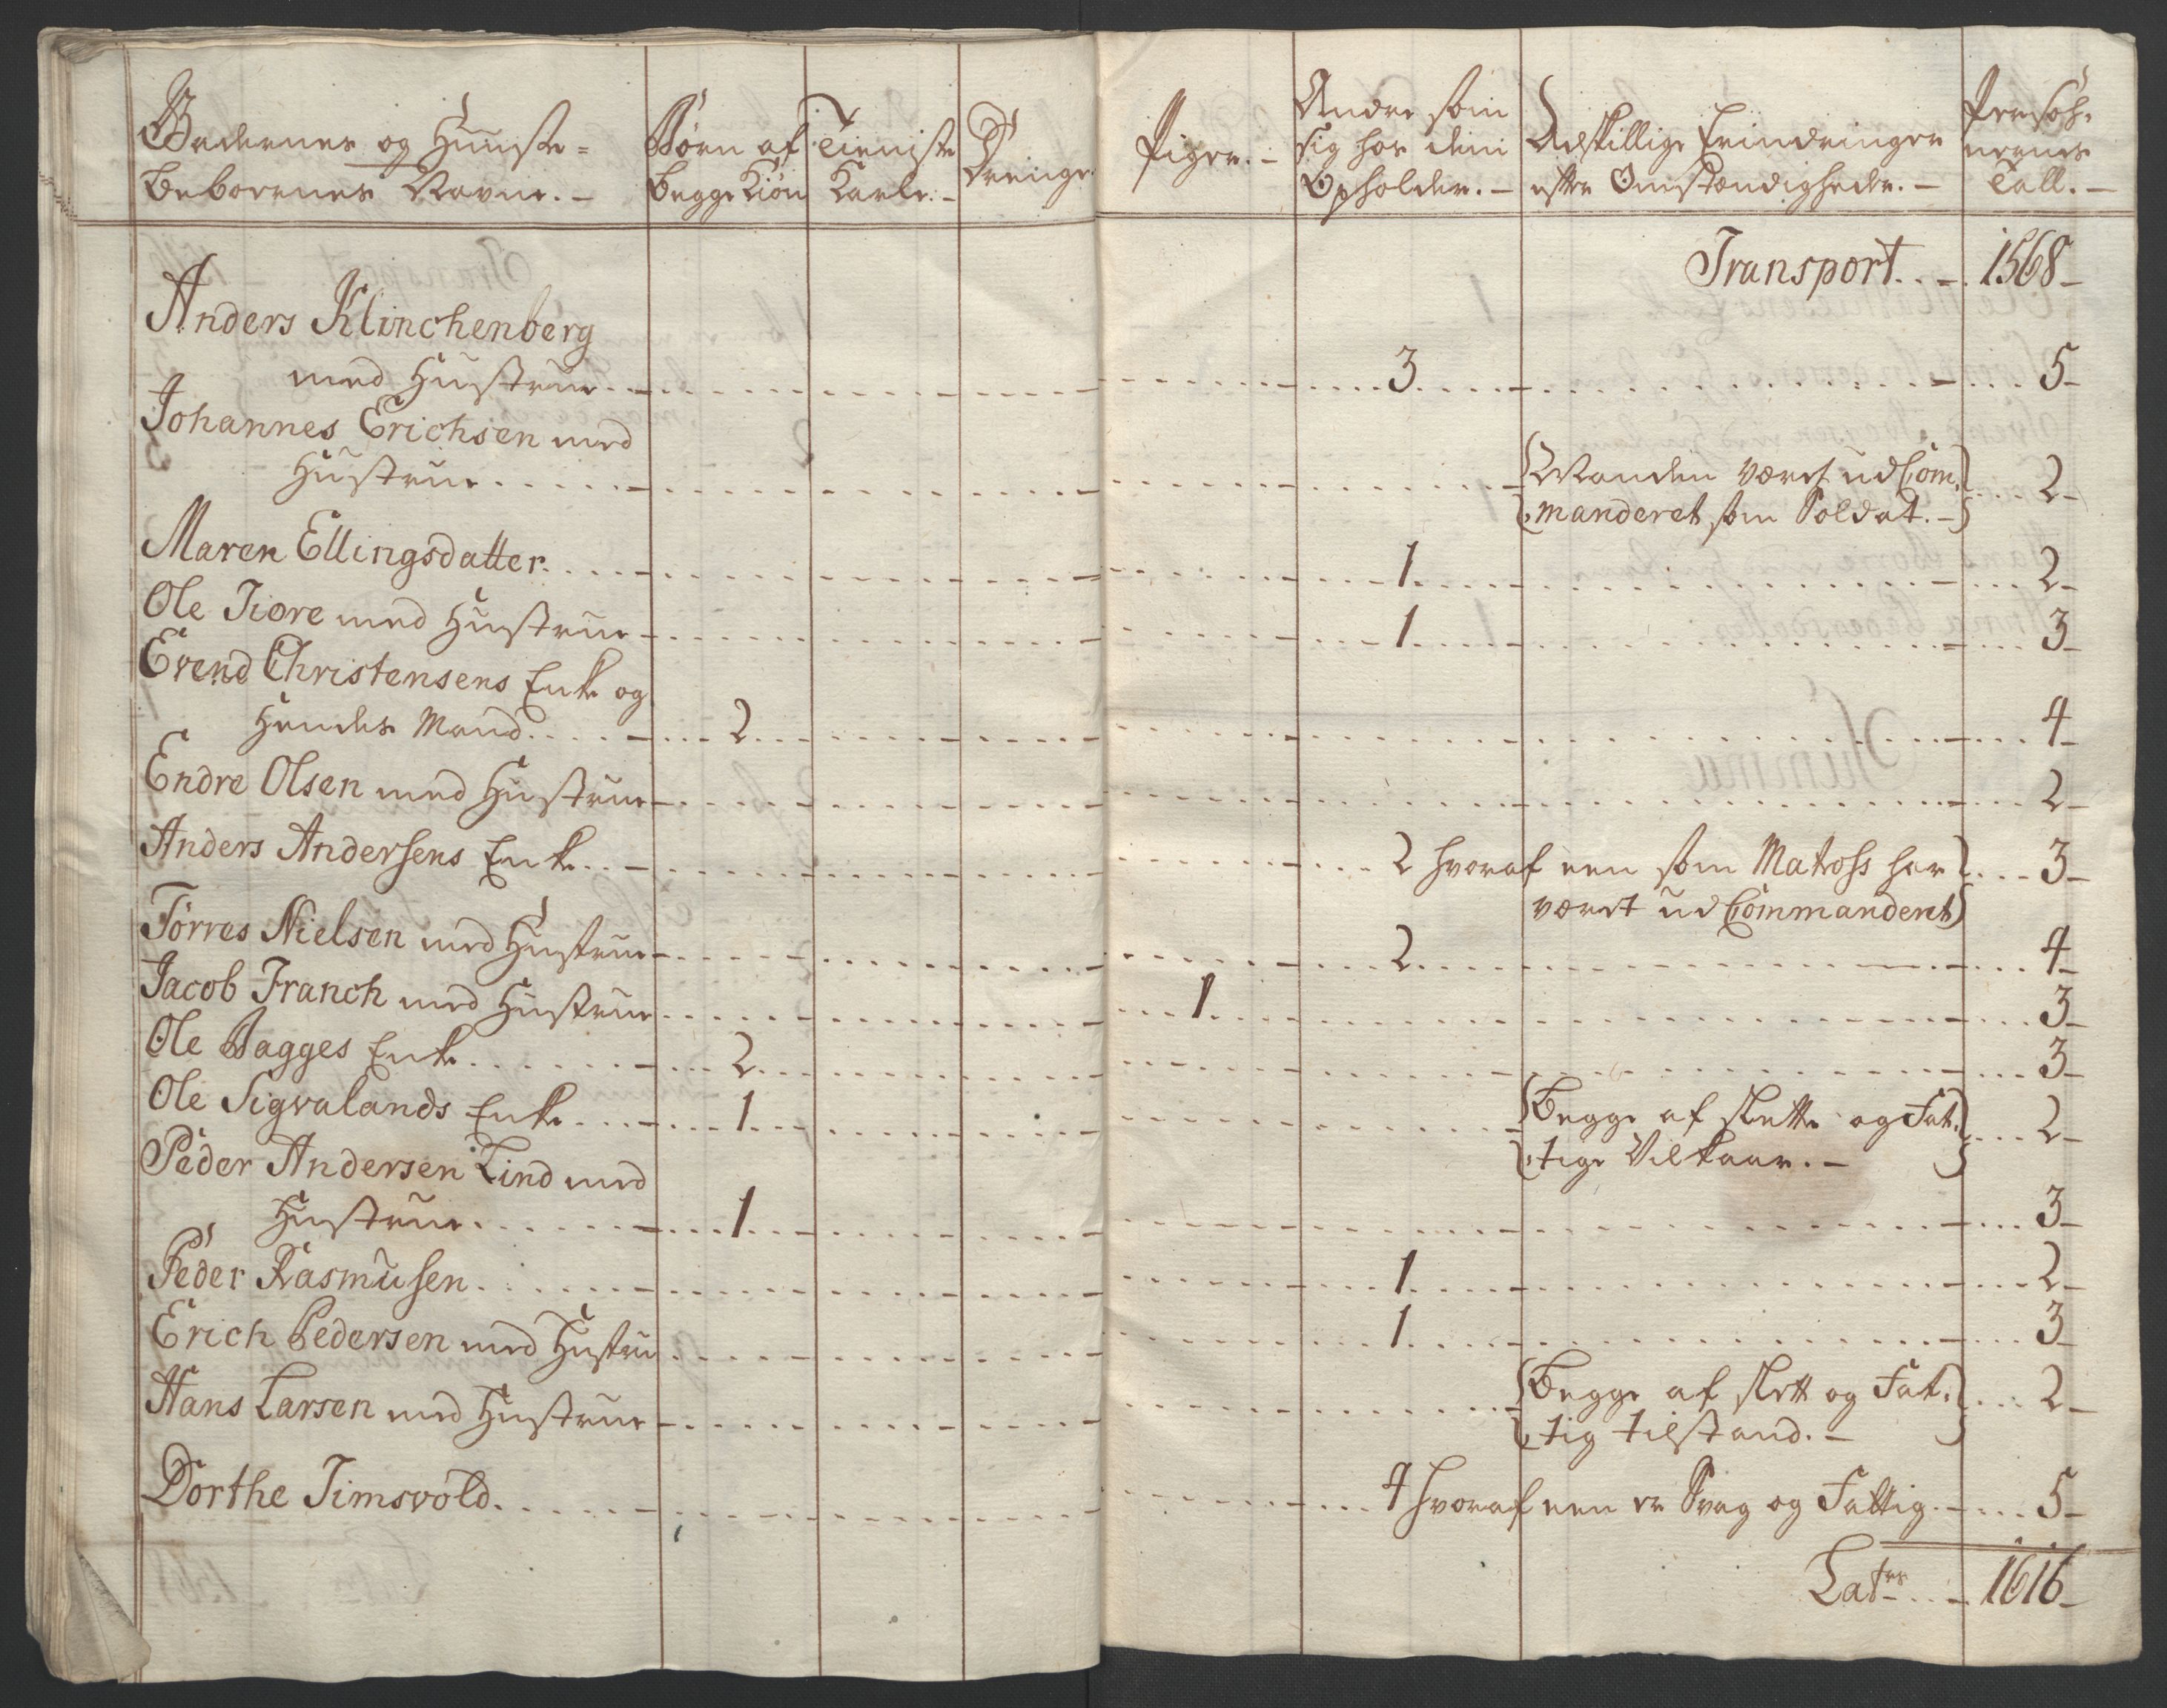 Gadernes og Huusse-
beboernes Navne. -
Børn af
begge Kiøn
Tieniste
Karle. -
Drenge.
Piger. -
Andre som
sig hos dem
Opholder. -
Adskillige Erindringer
efter Omstændighede. -
Persoh-
nernes
Tall. -
Transport. . - . 1568 -
Anders Klinchenberg
med Hustrue . . - 3 . . . . 5 -
Johannes Erichsen med
Hustrue . . . . . - Manden været ud Com- . . . 2 -
manderet som Soldat. -
Maren Ellingsdatter . . . . - 1 . . . . 2 -
Ole Tiore med Hustrue - 1 . . . . 3 -
Evend Christensens Enke og
Hendes Mand . . . . - 2 . . . . 4 -
Endre Olsen med Hustrue - . . . . 2 -
Anders Andersens Enke . . - 2 hvoraf een som Matross har . . . 3 -
været ud Commanderet
Törres Nielsen med Hustrue - 2 . . . . 4 -
Jacob Franch med Hustrue 1 . . . . 3 -
Ole Bagges Enke . . . . . - 2 . . . . 3 -
Ole Sigvalands Enke . . . - 1 Begge af slette og Fat- . . . 2 -
tige Vilkaar. -
Peder Andersen Lind med
Hustrue . . . . . - 1 . . . . 3 -
Peder Rasmusen . . . . . - 1 . . . . 2 -
Erich Pedersen med Hustru 1 . . . . 3 -
Hans Larsen med Hustrue - Begge af slett og Fat- . . . 2 -
tig tilstand. -
Dorthe Timsvold . . . . . - 4 hvoraf een er Svag og Fattig. - . . . 5 -
Latus . . - 1616 -